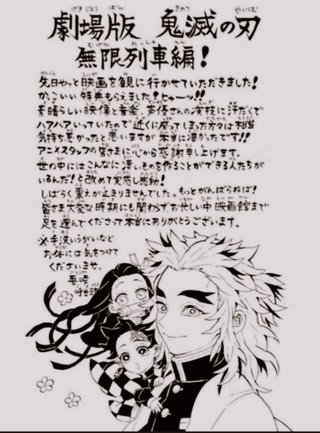 劇場版 鬼滅の刃
無限列車編!
先日やっと映画を観に行かせていただきました!
かっこいい特典もらえました!じゃーッ!!
素晴らしい映像と音楽、声優さんの演技に汗だくで
ハアハアいっていたので近くに座ってしまった方々は本当
気持ち悪かったと思いますが本当に凄かったです!!
アニメスタッフの皆さまに心から感謝申し上げます。
世の中にはこんなに凄いものを作ることができる人たちが
いるんだ!と改めて実感し感動!
しばらく震えが止まりませんでした。もっとがんばらねば!
皆さま大変な時期にも関わらずお忙しい中映画館まで
足を運んでくださって本当にありがとうございます。
※手洗いうがいなど
お体には気をつけて
くださいませ。
吾峠
呼世晴